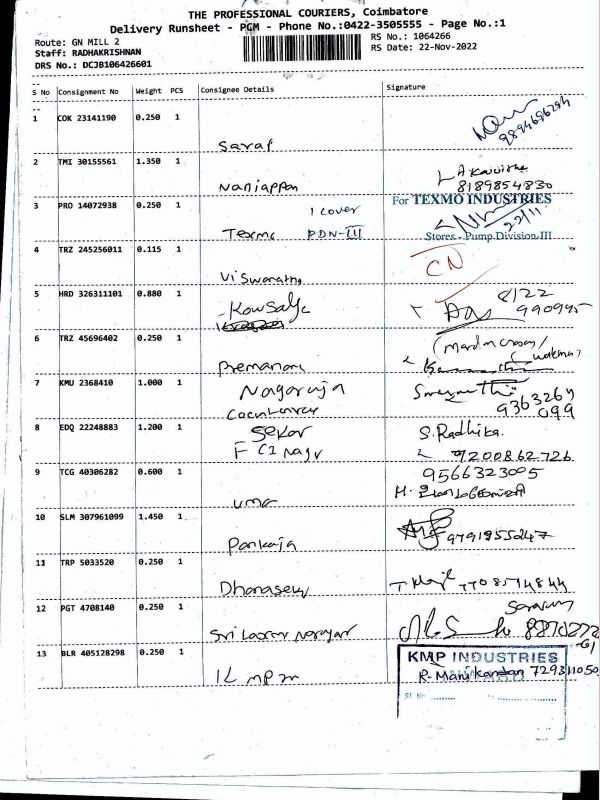 THE PROFESSIONAL COURIERS, Coimbatore
Delivery Runsheet - PGM - Phone No.:0422-3505555 - Page No.:1
Route: GN MILL 2
RS No.: 1064266
Staff: RADHAKRISHNAN
RS Date: 22-Nov-2022
DRS No.: DCJB106426601
S No Consignment No Weight PCS Consignee Details Signature
1 COK 23141190 0.250 1
Saraf
9894696294
2 TMI 30155561 1.350 1
Nanjappan
8189854830
3 PRO 14072938 0.250 1
1 cover
Texmo PDN-III
For TEXMO INDUSTRIES
22/11
Stores - Pump Division-III
4 TRZ 245256011 0.115 1
Viswanath
CN
5 HRD 326311101 0.880 1
Kowsalya
8122
990995
6 TRZ 45696402 0.250 1
Premanand
7 KMU 2368410 1.000 1
Nagaraja
9363264
099
8 EDQ 22248883 1.200 1
Sekar
FCI Nagr
S.Radhika.
9200862726
9 TCG 40306282 0.600 1
uma
9566323005
10 SLM 307961099 1.450 1
Pankaja
9791955247
11 TRP 5033520 0.250 1
Dhanasekar
7708574844
12 PGT 4708140 0.250 1
Sri Laxmi Narayan
13 BLR 405128298 0.250 1
KMP INDUSTRIES
R. Manikandan 729311050